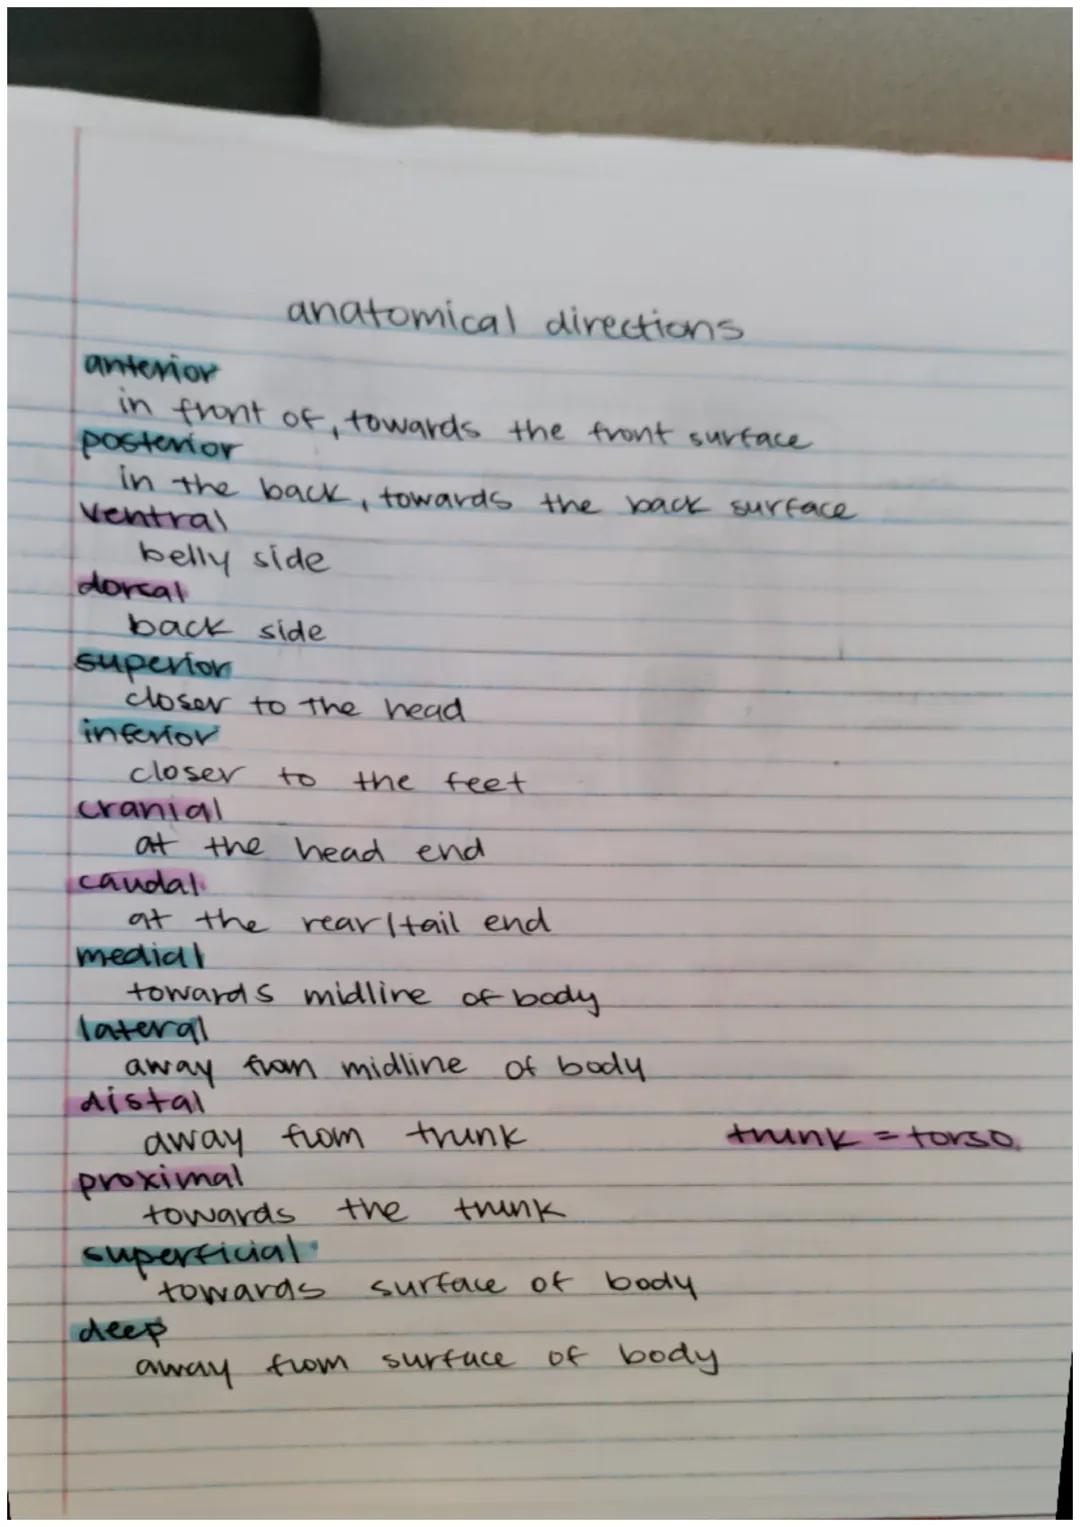 anatomical directions
anterior
in front of, towards the front surface
posterior
in the back, towards the back surface
ventral
belly side
dorsal
back side
superior
closer to the head
inferior
closer to the feet
cranial
at the head end
caudal
at the rear/tail end
medial
towards midline of body
lateral
away from midline of body
distal
away from trunk trunk = torso
proximal
towards the trunk
superficial
towards surface of body
deep
away from surface of body